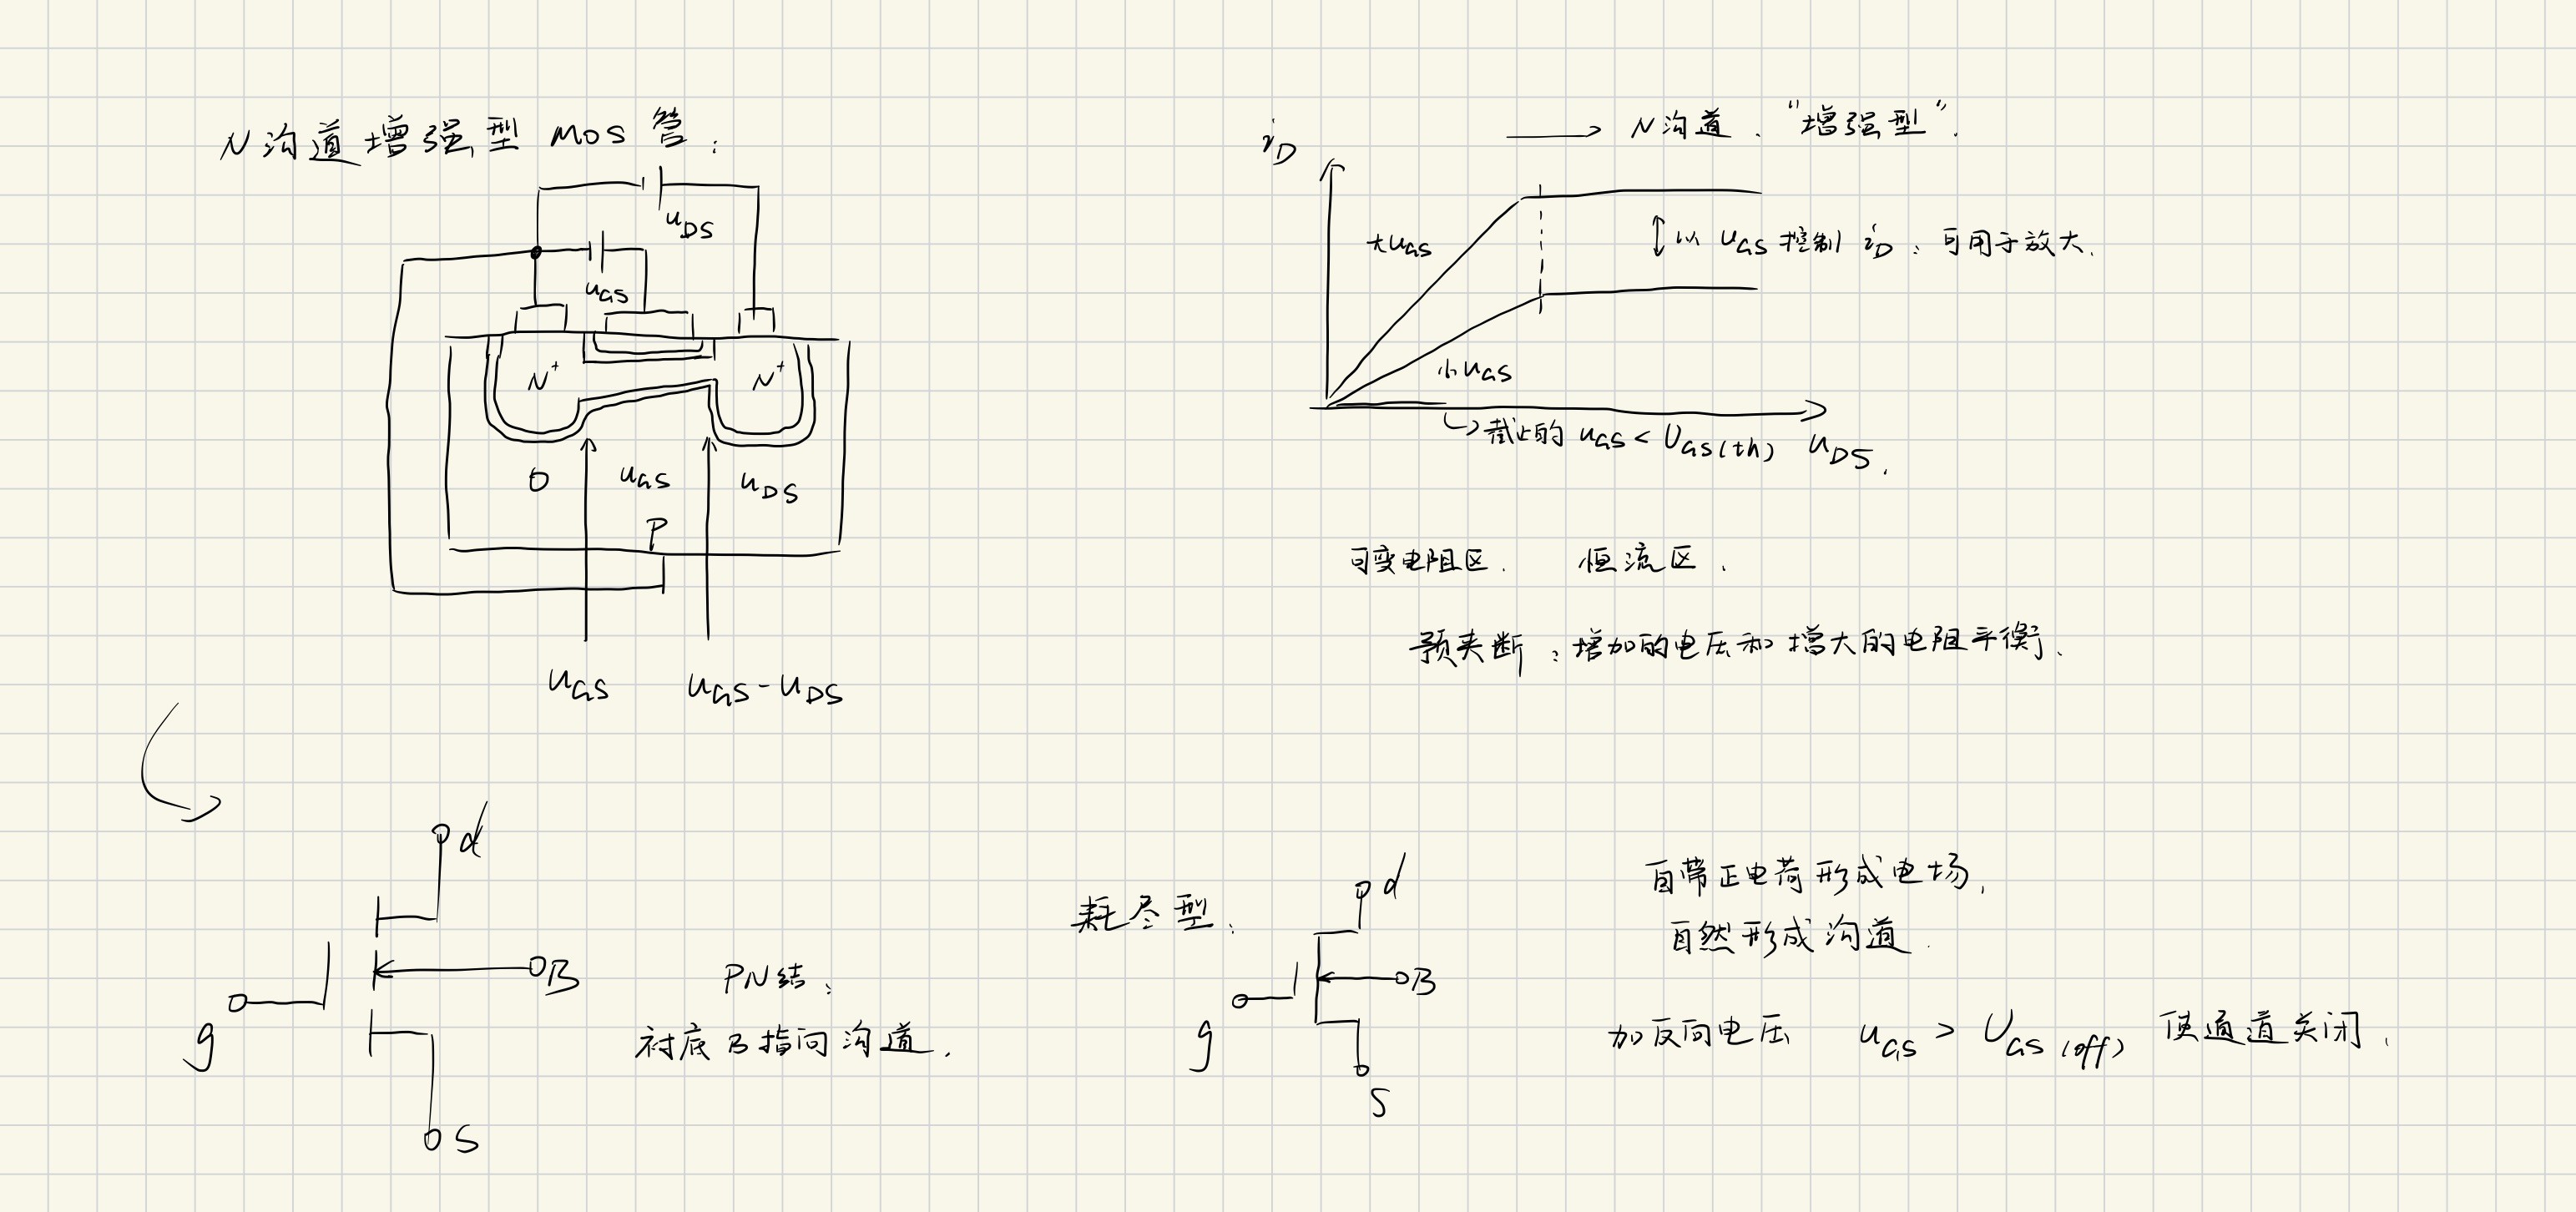 N沟道增强型 MOS 管:
uDS
uGS
N⁺
N⁺
0
uGS
uDS
P
uGS
uGS - uDS
iD
→ N沟道、“增强型”.
大uGS
以 uGS 控制 iD：可用于放大.
小uGS
截止的 uGS < UGS(th)
uDS.
可变电阻区. 恒流区.
预夹断：增加的电压和增大的电阻平衡.
d
g
B
S
PN结:
衬底B指向沟道.
耗尽型:
d
g
B
S
自带正电荷形成电场,
自然形成沟道.
加反向电压 uGS > UGS(off) 使通道关闭.